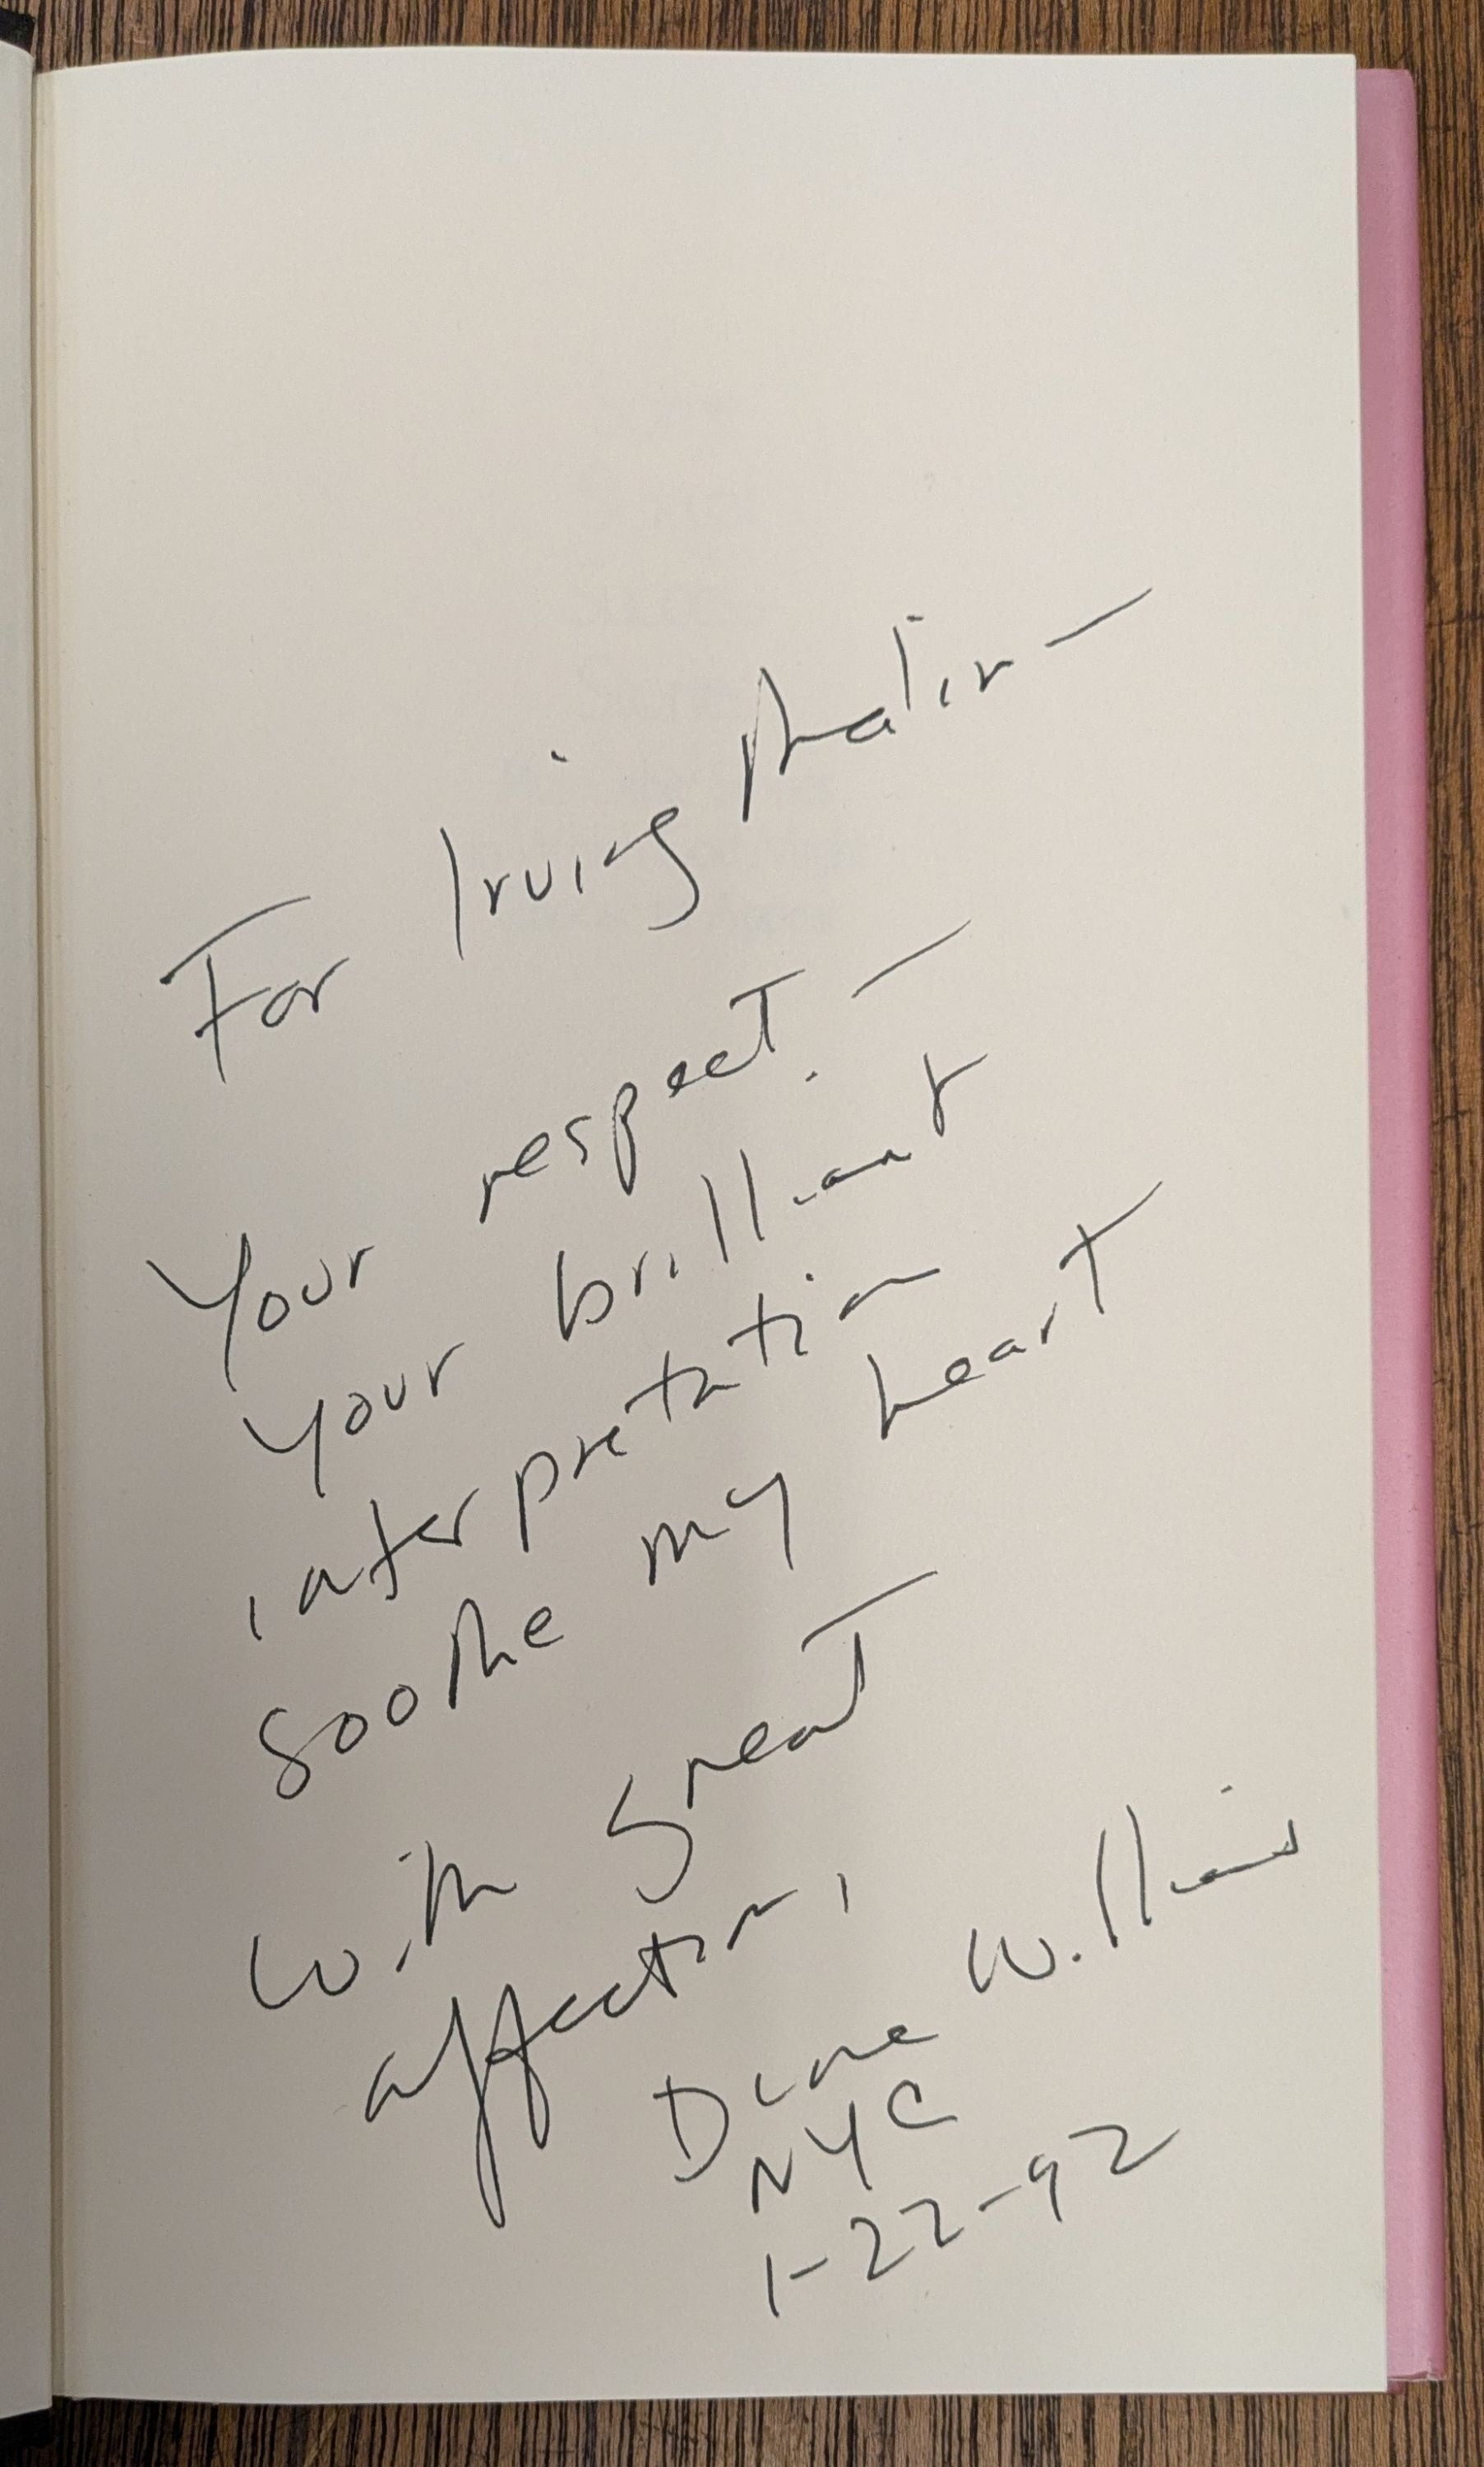 For Irving Malin —
Your respect. —
your brilliant
interpretation
soothe my heart
With great
affection,
Diane Williams
NYC
1-22-92